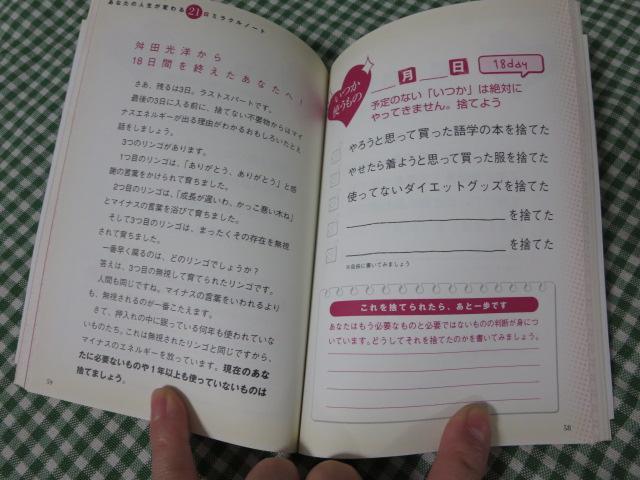 あなたの人生が変わる21日ミラクルノート
舛田光洋から
18日間を終えたあなたへ！
さあ、残るは3日。ラストスパートです。
最後の3日に入る前に、捨てない不要物からはマイ
ナスエネルギーが出る理由がわかるおもしろいたとえ
話をしましょう。
3つのリンゴがあります。
1つ目のリンゴは、「ありがとう、ありがとう」と感
謝の言葉をかけられて育ちました。
2つ目のリンゴは、「成長が遅いわ、かっこ悪い木ね」
とマイナスの言葉を浴びて育ちました。
そして3つ目のリンゴは、まったくその存在を無視
されて育ちました。
一番早く腐るのは、どのリンゴでしょうか？
答えは、3つ目の無視して育てられたリンゴです。
人間も同じですね。マイナスの言葉をいわれるより
も、無視されるのが一番こたえます。
さて、押入れの中に眠っている何年も使われていな
いものたち。これは無視されたリンゴと同じですから、
マイナスのエネルギーを放っています。現在のあな
たに必要ないものや1年以上も使っていないものは
捨てましょう。
いつか
使うもの
月 日
18day
予定のない「いつか」は絶対に
やってきません。捨てよう
やろうと思って買った語学の本を捨てた
やせたら着ようと思って買った服を捨てた
使ってないダイエットグッズを捨てた
を捨てた
を捨てた
※自由に書いてみましょう
これを捨てられたら、あと一歩です
あなたはもう必要なものと必要ではないものの判断が身につ
いています。どうしてそれを捨てたのかを書いてみましょう。
58